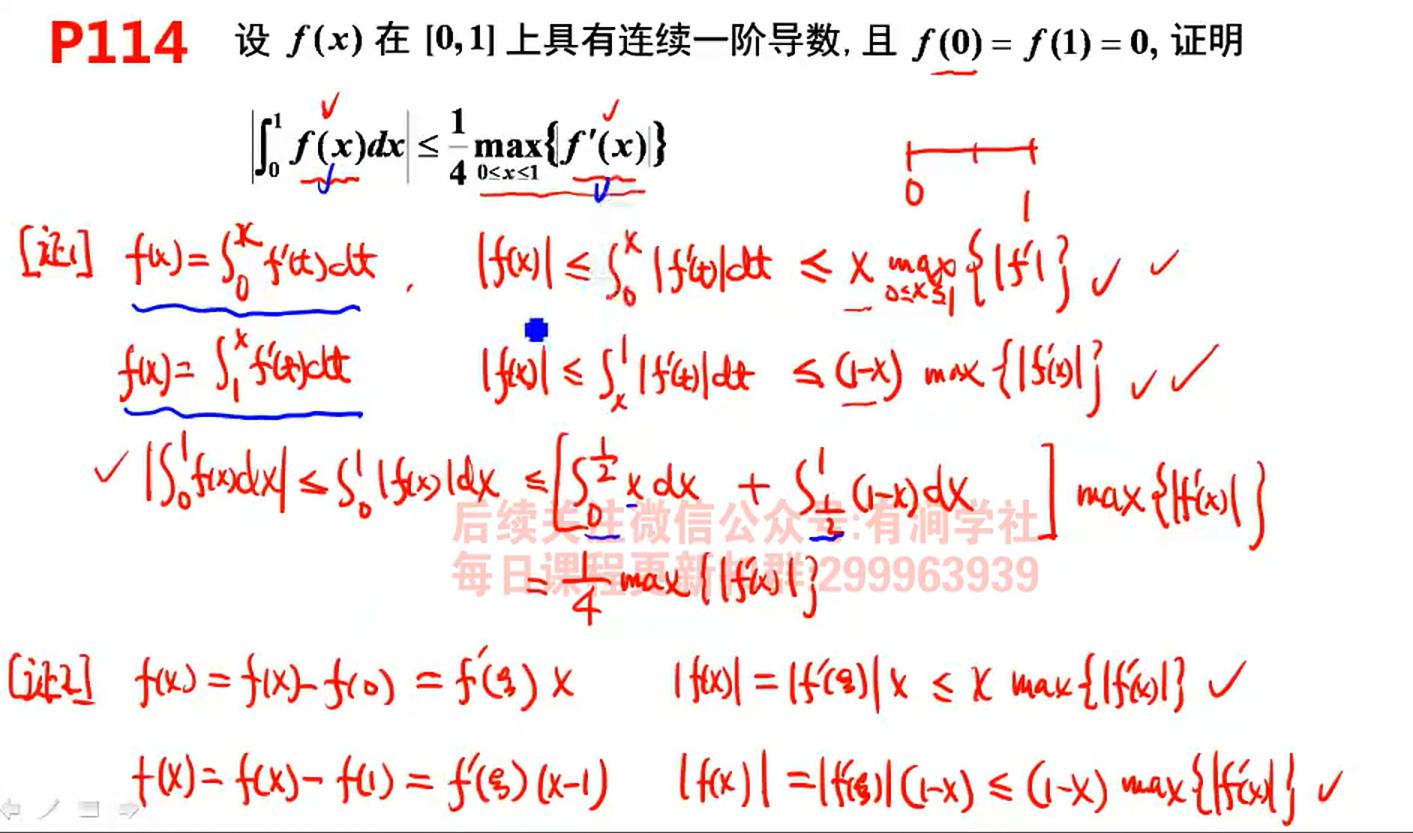 P114 设 f(x) 在 [0,1] 上具有连续一阶导数, 且 f(0) = f(1) = 0, 证明
|∫₀¹ f(x)dx| ≤ 1/4 max{|f'(x)|}
0≤x≤1
0 1
[证1] f(x) = ∫₀ˣ f'(t)dt , |f(x)| ≤ ∫₀ˣ |f'(t)|dt ≤ x max{|f'|}
0≤x≤1
f(x) = ∫₁ˣ f'(t)dt |f(x)| ≤ ∫ₓ¹ |f'(t)|dt ≤ (1-x) max{|f'(x)|}
|∫₀¹ f(x)dx| ≤ ∫₀¹ |f(x)|dx ≤ [∫₀^½ x dx + ∫_½¹ (1-x)dx] max{|f'(x)|}
后续关注微信公众号:有润学社
= 1/4 max{|f'(x)|}
每日课程更新 群 299963939
[证2] f(x) = f(x) - f(0) = f'(ξ) x |f(x)| = |f'(ξ)| x ≤ x max{|f'(x)|}
f(x) = f(x) - f(1) = f'(ξ)(x-1) |f(x)| = |f'(ξ)|(1-x) ≤ (1-x) max{|f'(x)|}